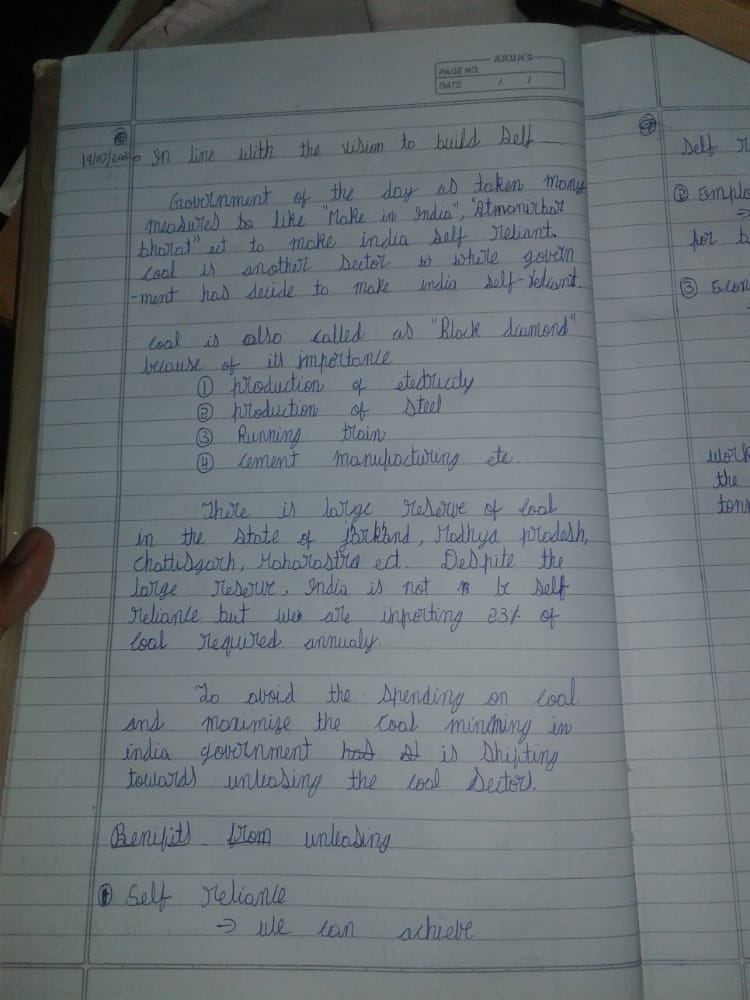 ARUN'S
PAGE NO.
DATE / /
19/07/2020 In line with the vision to build Self
Government of the day as taken many
measures to like "Make in India", "Atmanirbar
bharat" ect to make india self reliant.
coal is another sector where govern
-ment has decide to make india self-reliant.
coal is also called as "Black diamond"
because of its importance
① production of electricity
② production of steel
③ Running train
④ cement manufacturing etc.
There is large reserve of coal
in the state of jarkhand, Madhya pradesh,
chattisgarh, Maharastra ect. Despite the
large reserve, India is not be self
reliance but we are importing 23% of
coal required annualy.
To avoid the spending on coal
and maximize the coal minining in
india government has is shifting
towards unleasing the coal sector.
Benifits from unleasing
① Self reliance
→ we can achieve
self r
② Emplo
→
for b
③ Econ
work
the
tons